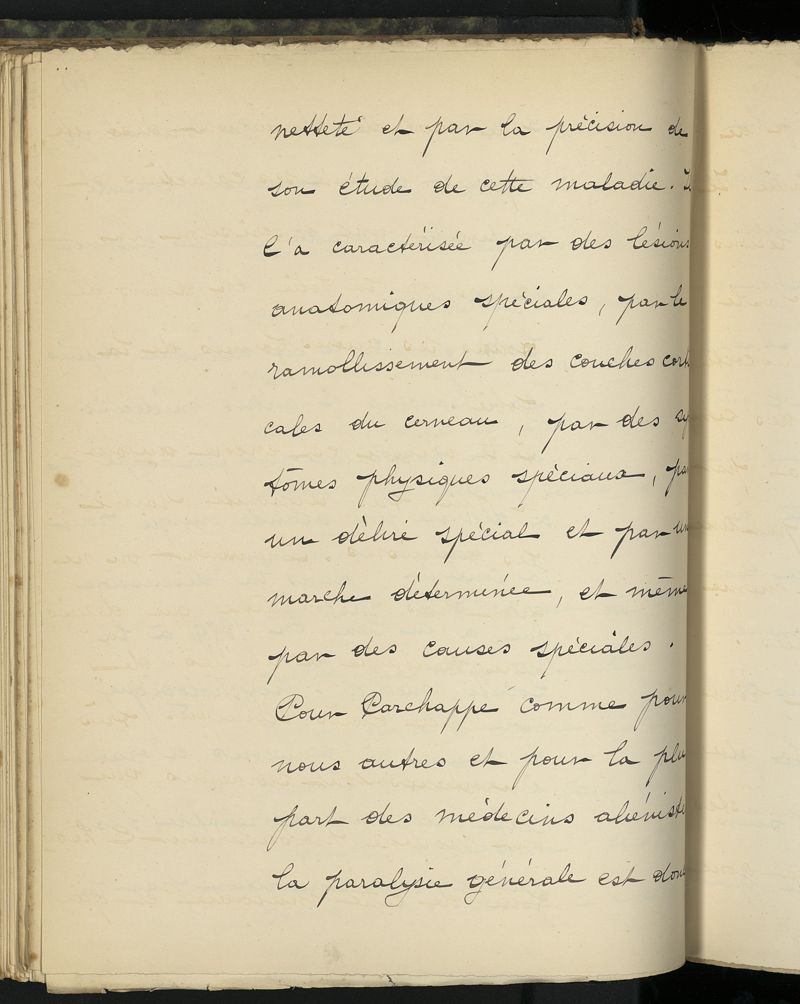 netteté et par la précision de
son étude de cette maladie. I
l'a caractérisée par des lésions
anatomiques spéciales, par le
ramollissement des couches corti
cales du cerveau, par des sy
tômes physiques spéciaux, pa
un délire spécial et par un
marche déterminée, et même
par des causes spéciales.
Pour Parchappe comme pour
nous autres et pour la plu
part des médecins aliéniste
la paralysie générale est donc